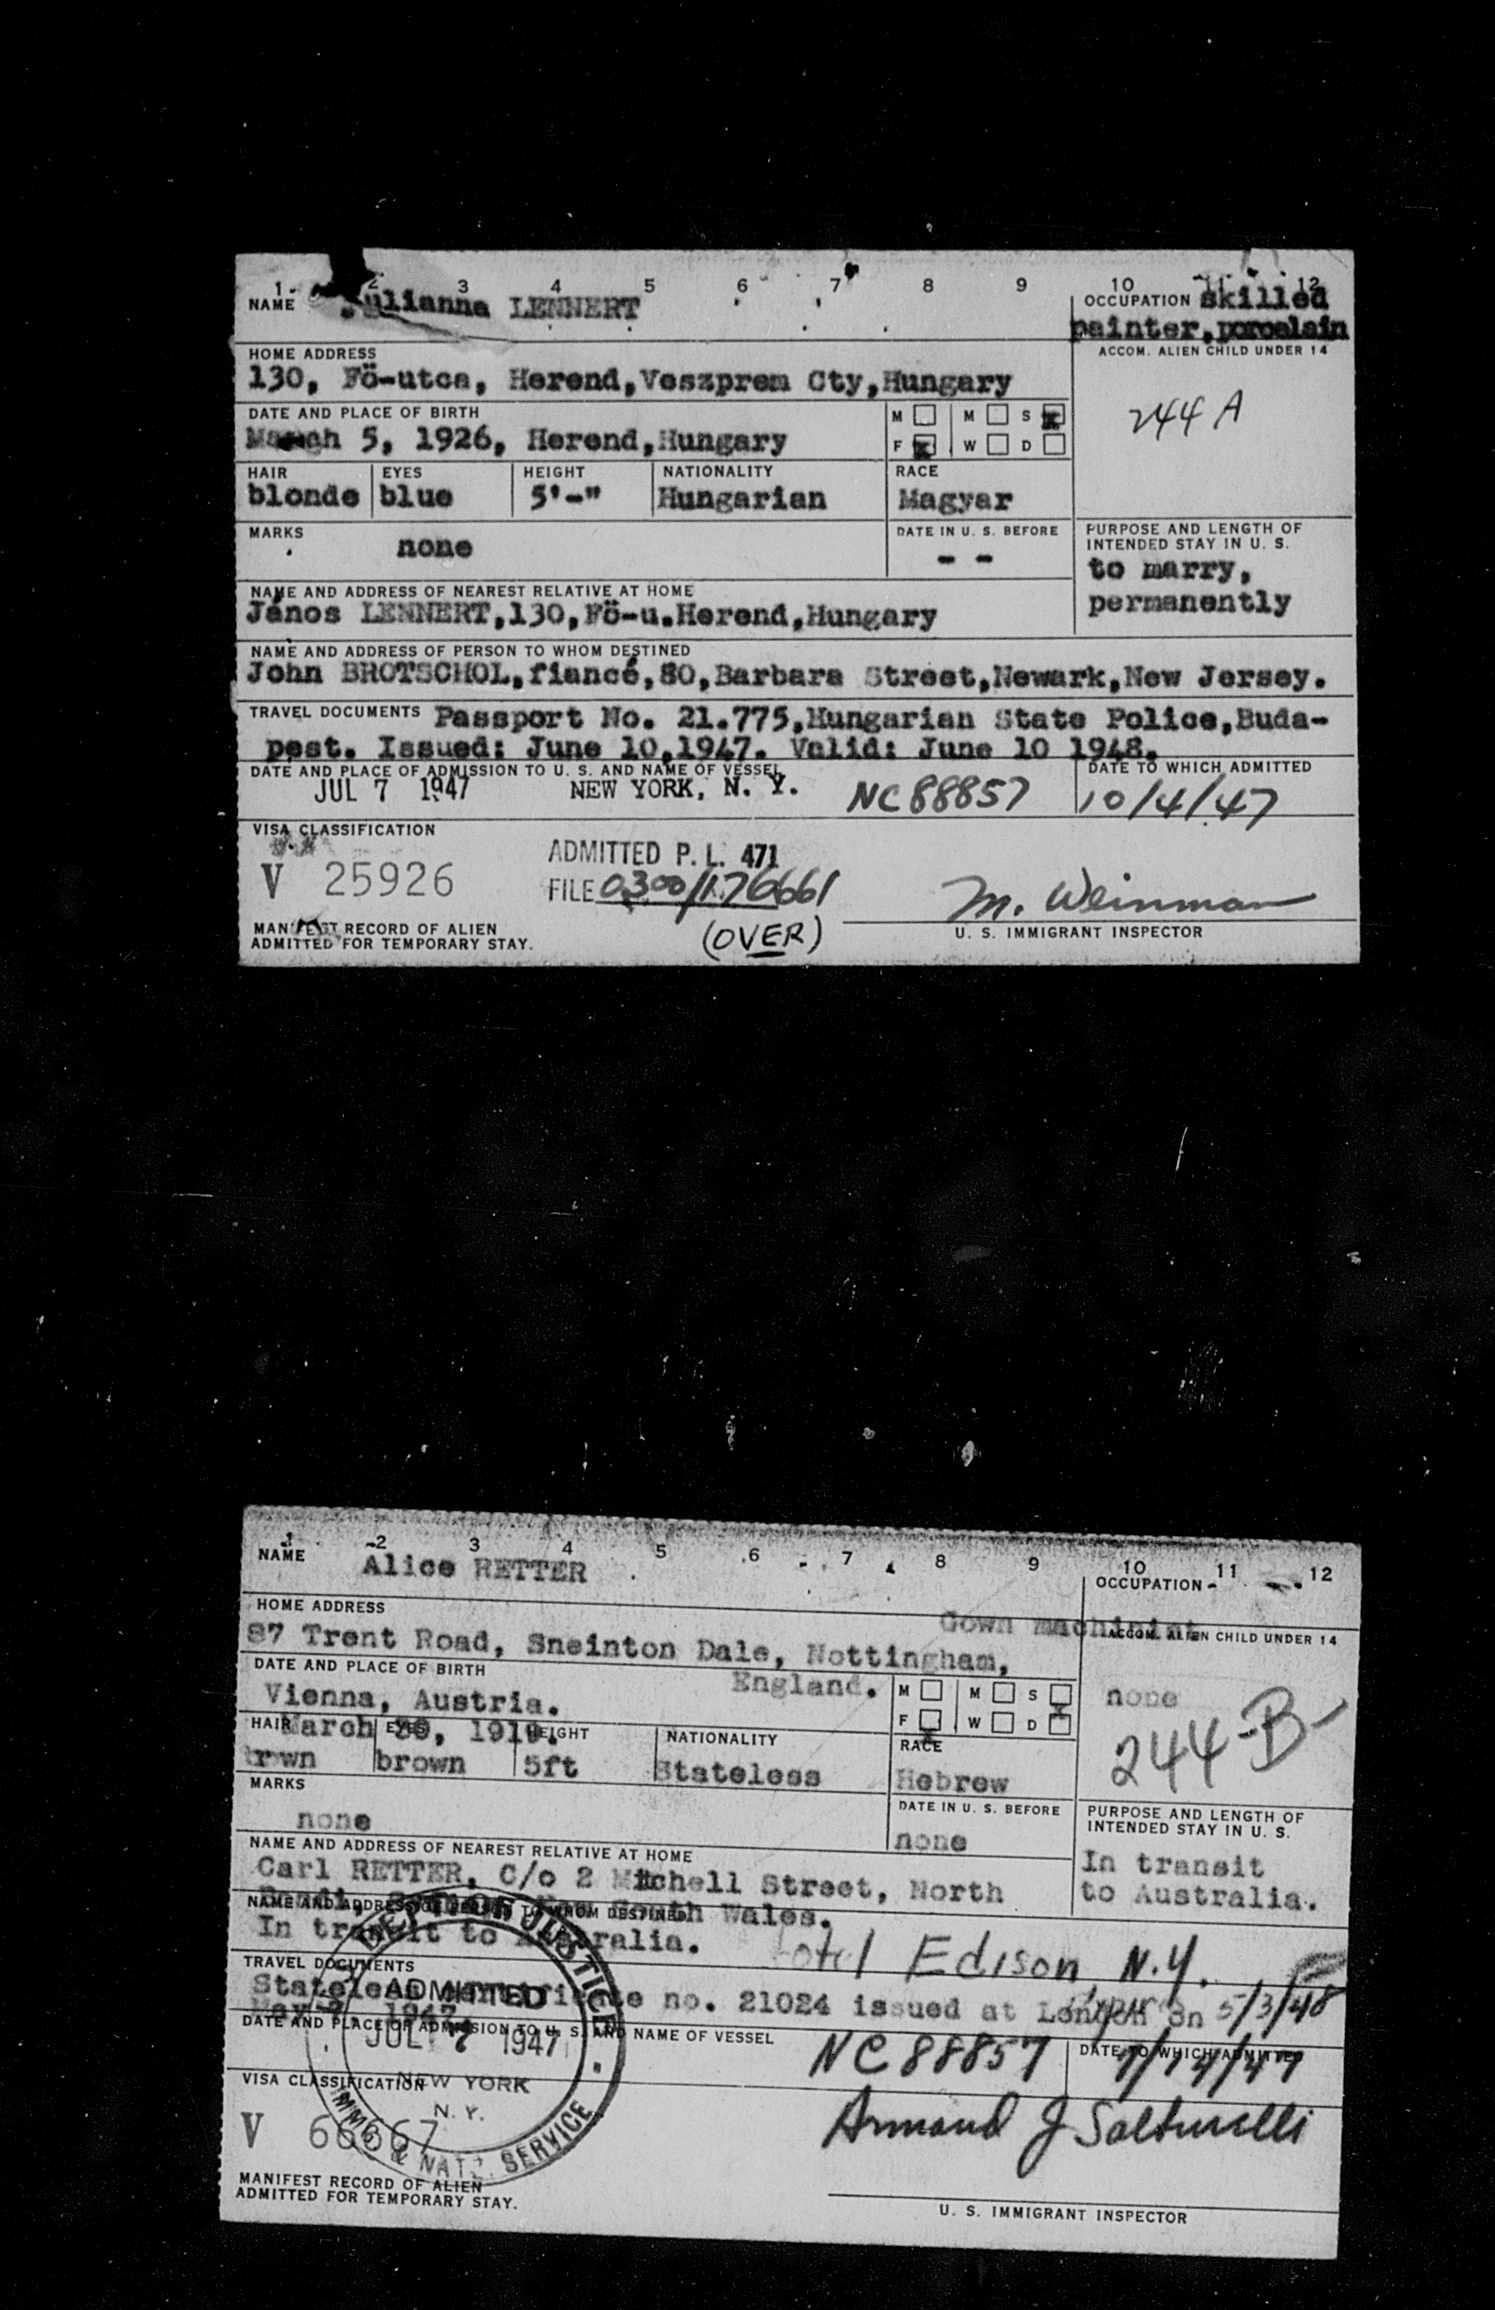 1 2 3 4 5 6 7 8 9 10 11 12
NAME Julianna LENNERT
OCCUPATION skilled
painter, porcelain
HOME ADDRESS
130, Fö-utca, Herend, Veszprem Cty, Hungary
ACCOM. ALIEN CHILD UNDER 14
244 A
DATE AND PLACE OF BIRTH
March 5, 1926, Herend, Hungary
M M S X
F X W D
HAIR EYES HEIGHT NATIONALITY RACE
blonde blue 5'-" Hungarian Magyar
MARKS
none
DATE IN U. S. BEFORE
- -
PURPOSE AND LENGTH OF
INTENDED STAY IN U. S.
to marry,
permanently
NAME AND ADDRESS OF NEAREST RELATIVE AT HOME
János LENNERT, 130, Fö-u. Herend, Hungary
NAME AND ADDRESS OF PERSON TO WHOM DESTINED
John BROTSCHOL, fiancé, 80, Barbara Street, Newark, New Jersey.
TRAVEL DOCUMENTS Passport No. 21.775, Hungarian State Police, Buda-
pest. Issued: June 10, 1947. Valid: June 10 1948.
DATE AND PLACE OF ADMISSION TO U. S. AND NAME OF VESSEL
JUL 7 1947 NEW YORK, N. Y. NC 88857
DATE TO WHICH ADMITTED
10/4/47
VISA CLASSIFICATION
V 25926
ADMITTED P. L. 471
FILE 0300/176661
(OVER)
M. Weinman
U. S. IMMIGRANT INSPECTOR
MANIFEST RECORD OF ALIEN
ADMITTED FOR TEMPORARY STAY.
1 2 3 4 5 6 7 8 9 10 11 12
NAME Alice RETTER
OCCUPATION
Gown machinist
HOME ADDRESS
87 Trent Road, Sneinton Dale, Nottingham,
England.
ACCOM. ALIEN CHILD UNDER 14
none
244-B-
DATE AND PLACE OF BIRTH
Vienna, Austria.
March 1919.
M M S
F W D
HAIR EYES HEIGHT NATIONALITY RACE
brwn brown 5ft Stateless Hebrew
MARKS
none
DATE IN U. S. BEFORE
none
PURPOSE AND LENGTH OF
INTENDED STAY IN U. S.
In transit
to Australia.
NAME AND ADDRESS OF NEAREST RELATIVE AT HOME
Carl RETTER, C/o 2 Mitchell Street, North
New South Wales.
NAME AND ADDRESS OF PERSON TO WHOM DESTINED
In transit to Australia. Hotel Edison, N.Y.
TRAVEL DOCUMENTS
Stateless Certificate no. 21024 issued at London on 5/3/48
May 1947
DATE AND PLACE OF ADMISSION TO U. S. AND NAME OF VESSEL
NC 88857
DATE TO WHICH ADMITTED
DEPT. OF JUSTICE
ADMITTED
JUL 7 1947
NEW YORK
N. Y.
IMM. & NATZ. SERVICE
VISA CLASSIFICATION
V 66667
Armand J
U. S. IMMIGRANT INSPECTOR
MANIFEST RECORD OF ALIEN
ADMITTED FOR TEMPORARY STAY.